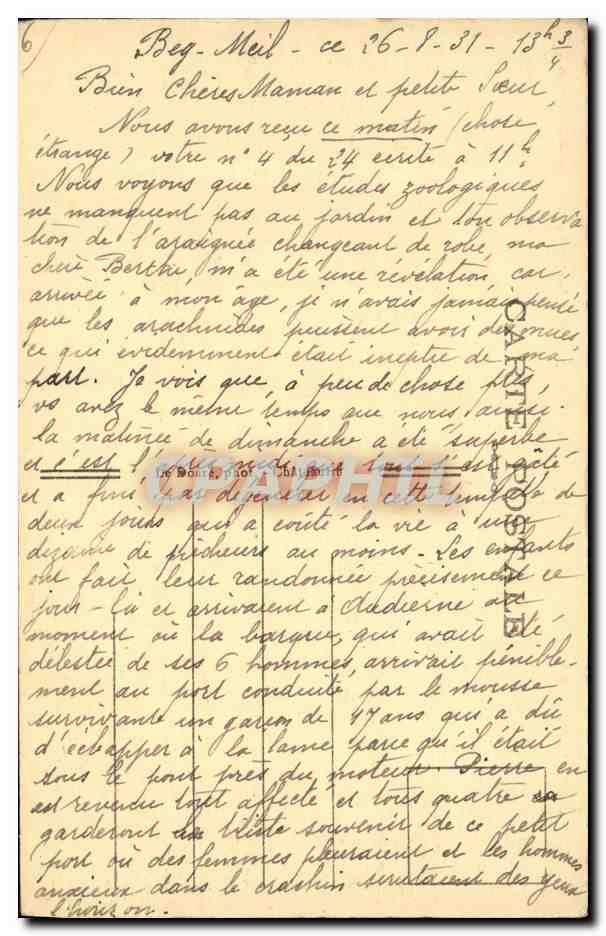 6)
Beg-Meil - ce 26-8-31 - 13h 3/4
Bien Chères Maman et petite Sœur,
Nous avons reçu ce matin (chose
étrange) votre n° 4 du 24 écrite à 11h.
Nous voyons que les études zoologiques
ne manquent pas au jardin et ton observa
tion de l'araignée changeant de robe, ma
chère Berthe m'a été une révélation car,
arrivée à mon âge, je n'avais jamais pensé
que les arachnides pussent avoir des mues
ce qui évidemment était inepte de ma
part. Je vois que, à peu de chose près,
vs avez le même temps que nous aussi.
la matinée de dimanche a été superbe
et c'est l'après-midi que tout s'est gâté
et a fini par dégénérer en cette tempête de
deux jours qui a coûté la vie à une
dizaine de pêcheurs au moins. Les enfants
ont fait leur randonnée précisément ce
jour-là et arrivaient à Audierne au
moment où la barque, qui avait été
délestée de ses 6 hommes, arrivait pénible-
ment au port conduite par le mousse
survivant un garçon de 17 ans qui a dû
d'échapper à la lame parce qu'il était
sous le pont près du moteur. Pierre en
est revenu tout affecté et tous quatre
garderont le triste souvenir de ce petit
port où des femmes pleuraient et les hommes
anxieux dans le crachin scrutaient des yeux
l'horizon.
CARTE POSTALE
Le Doaré, phot. Châteaulin
CPAPHIL